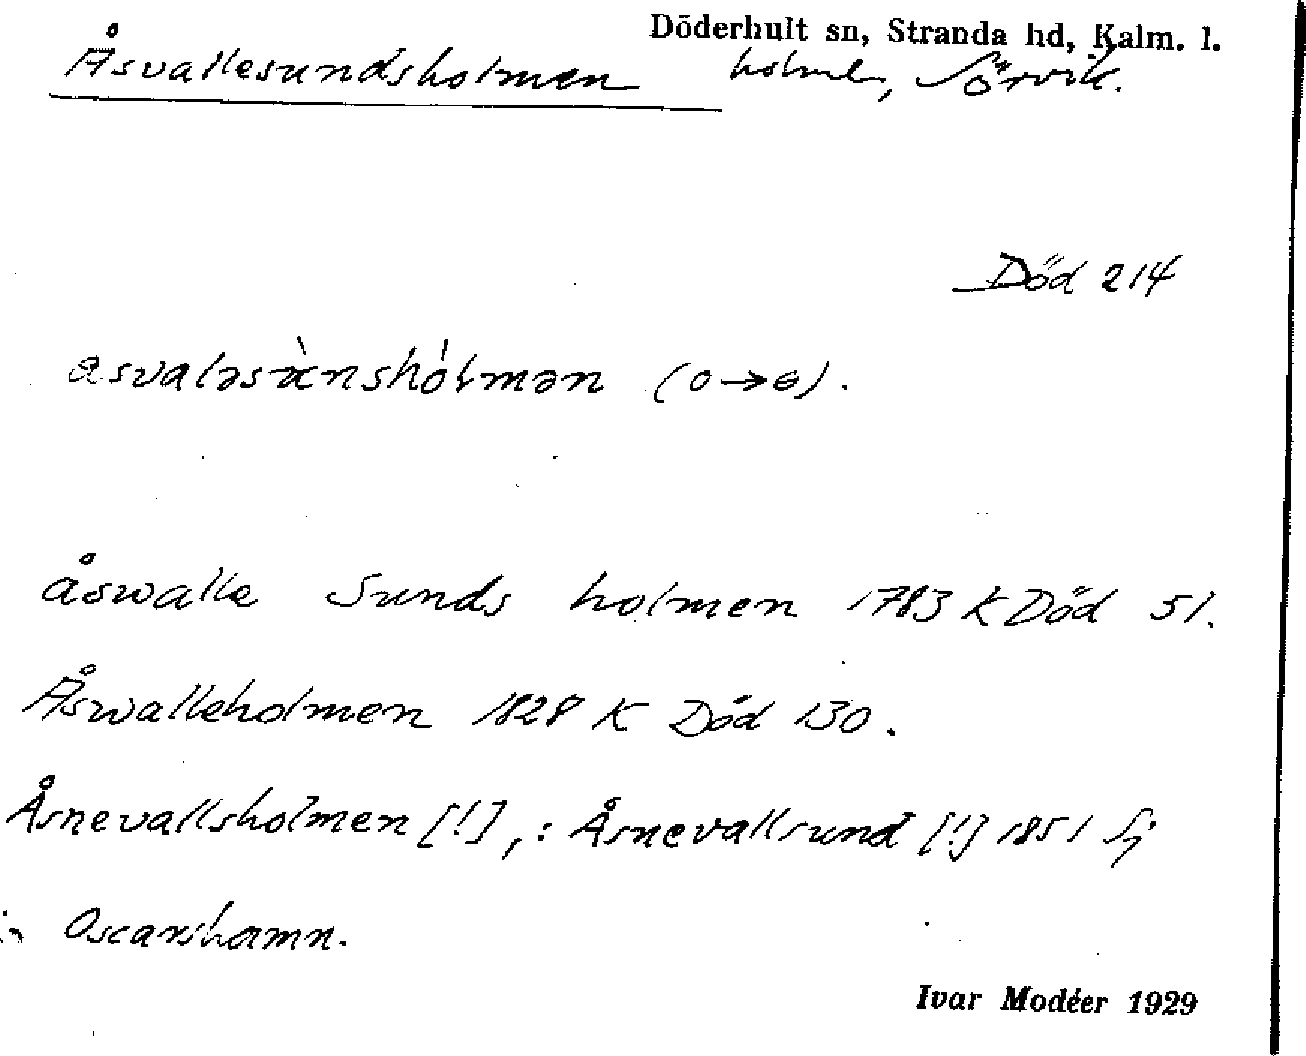 Döderhult sn, Stranda hd, Kalm. l.
Åsvallesundsholmen holme, Sörvik.
Död 214
asvaləsànshólmən (o→ɵ).
åswalle Sunds holmen 1783 K Död 51.
Åswalleholmen 1828 K Död 130.
Åsnevallsholmen [!], : Åsnevallsund [!] 1851 Sj
Oscarshamn.
Ivar Modéer 1929